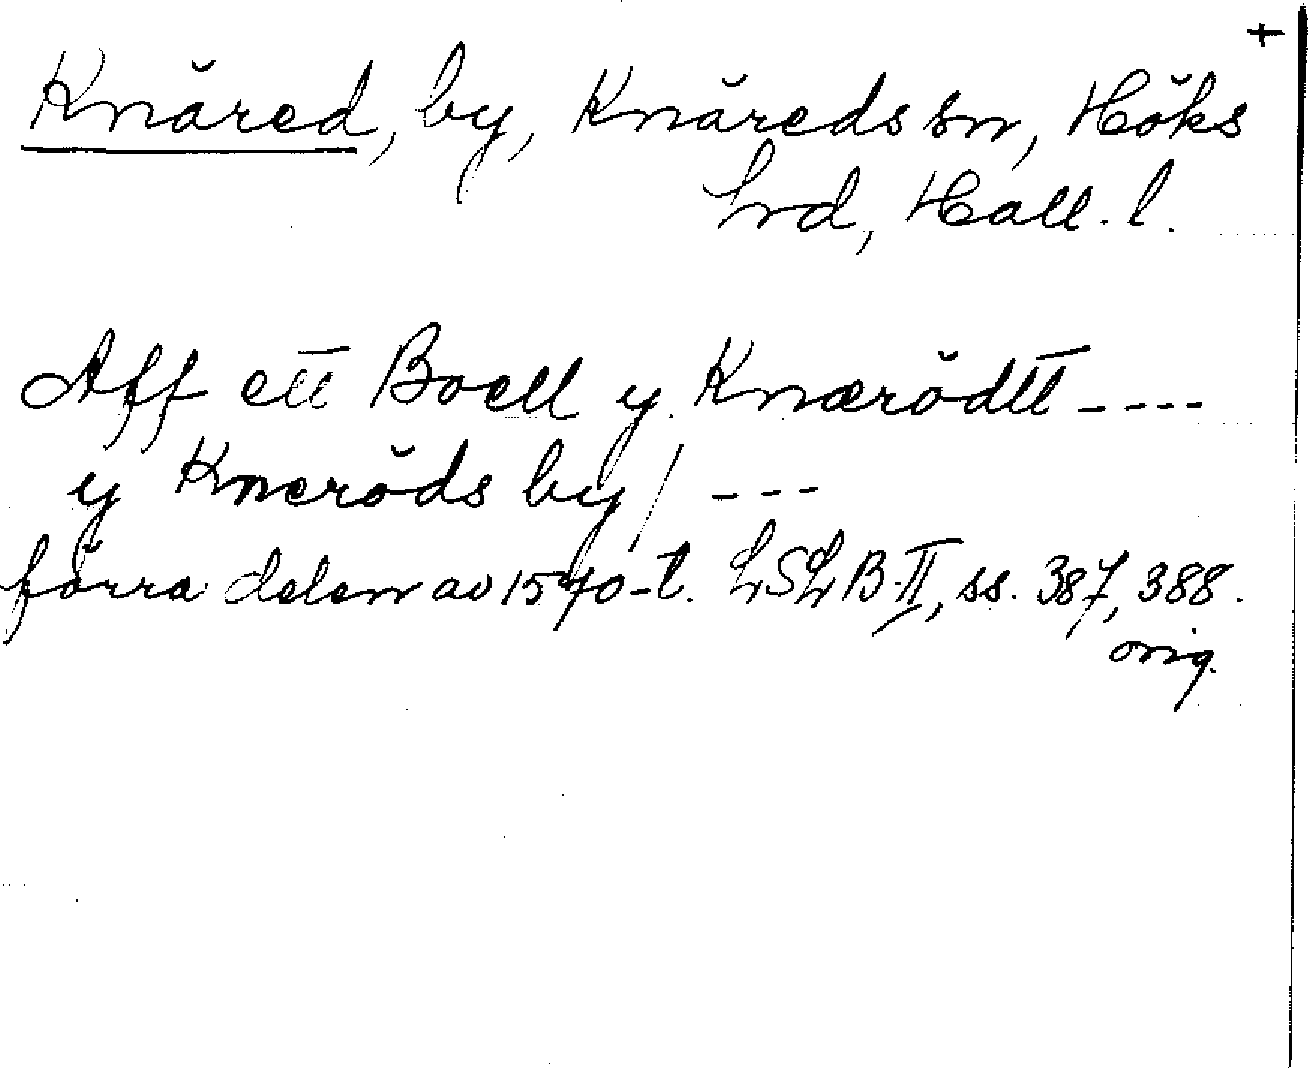 +
Knäred, by, Knäreds sn, Höks
hrd, Hall. l.
Aff ett Boell y Knærödtt ----
y Kneröds by / ---
förra delen av 1540-t. LSLB II, ss. 387, 388.
orig.